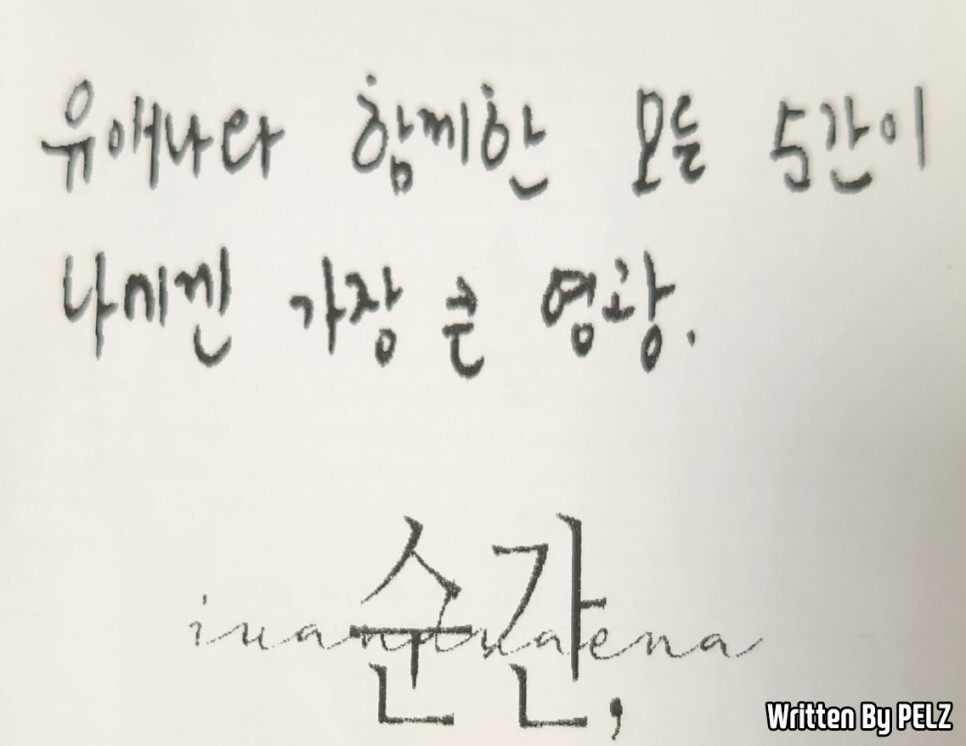 유애나와 함께한 모든 순간이
나에겐 가장 큰 영광.
순간,
iuanduaena
Written By PELZ